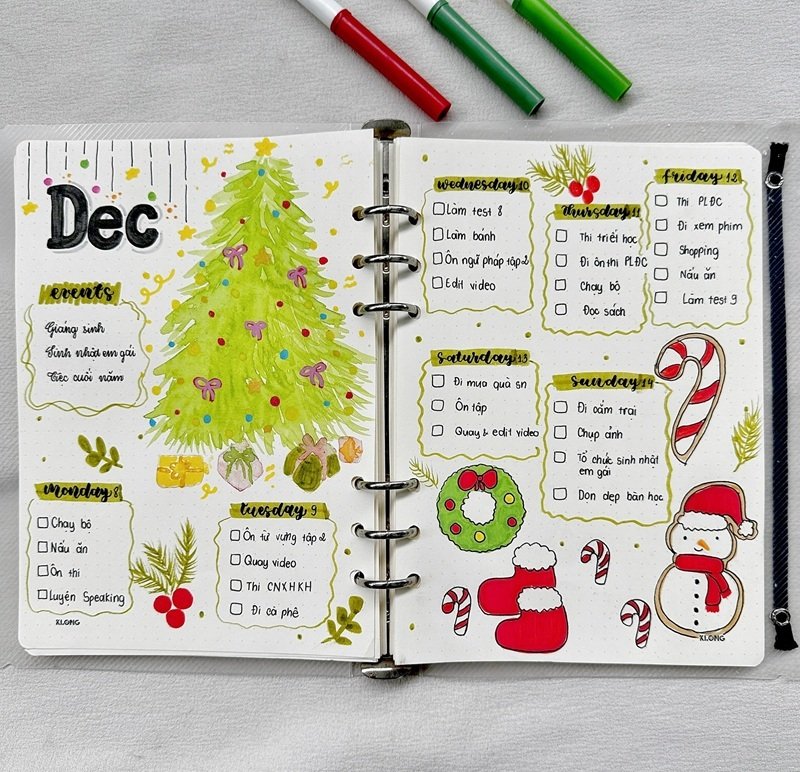 Dec
events
Giáng sinh
Sinh nhật em gái
Tiệc cuối năm
monday 8
Chạy bộ
Nấu ăn
Ôn thi
Luyện Speaking
XLONG
tuesday 9
Ôn từ vựng tập 2
Quay video
Thi CNXHKH
Đi cà phê
wednesday 10
Làm test 8
Làm bánh
Ôn ngữ pháp tập 2
Edit video
thursday 11
Thi triết học
Đi ôn thi PLĐC
Chạy bộ
Đọc sách
friday 12
Thi PLĐC
Đi xem phim
Shopping
Nấu ăn
Làm test 9
saturday 13
Đi mua quà sn
Ôn tập
Quay & edit video
sunday 14
Đi cắm trại
Chụp ảnh
Tổ chức sinh nhật
em gái
Dọn dẹp bàn học
XLONG